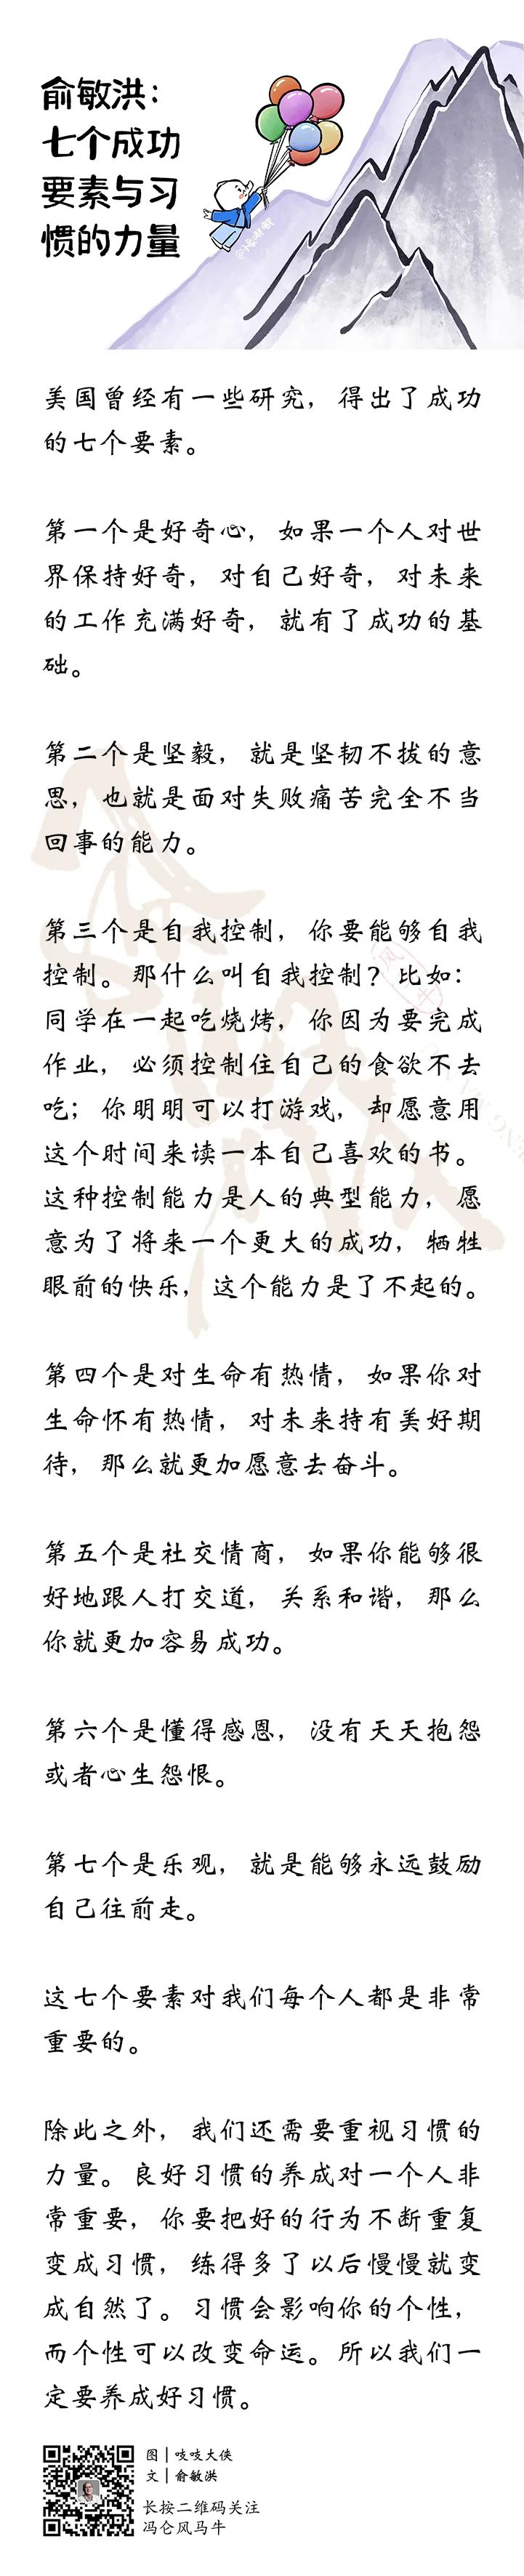 俞敏洪：
七个成功
要素与习
惯的力量
美国曾经有一些研究，得出了成功
的七个要素。
第一个是好奇心，如果一个人对世
界保持好奇，对自己好奇，对未来
的工作充满好奇，就有了成功的基
础。
第二个是坚毅，就是坚韧不拔的意
思，也就是面对失败痛苦完全不当
回事的能力。
第三个是自我控制，你要能够自我
控制。那什么叫自我控制？比如：
同学在一起吃烧烤，你因为要完成
作业，必须控制住自己的食欲不去
吃；你明明可以打游戏，却愿意用
这个时间来读一本自己喜欢的书。
这种控制能力是人的典型能力，愿
意为了将来一个更大的成功，牺牲
眼前的快乐，这个能力是了不起的。
第四个是对生命有热情，如果你对
生命怀有热情，对未来持有美好期
待，那么就更加愿意去奋斗。
第五个是社交情商，如果你能够很
好地跟人打交道，关系和谐，那么
你就更加容易成功。
第六个是懂得感恩，没有天天抱怨
或者心生怨恨。
第七个是乐观，就是能够永远鼓励
自己往前走。
这七个要素对我们每个人都是非常
重要的。
除此之外，我们还需要重视习惯的
力量。良好习惯的养成对一个人非
常重要，你要把好的行为不断重复
变成习惯，练得多了以后慢慢就变
成自然了。习惯会影响你的个性，
而个性可以改变命运。所以我们一
定要养成好习惯。
图｜吱吱大侠
文｜俞敏洪
长按二维码关注
冯仑风马牛